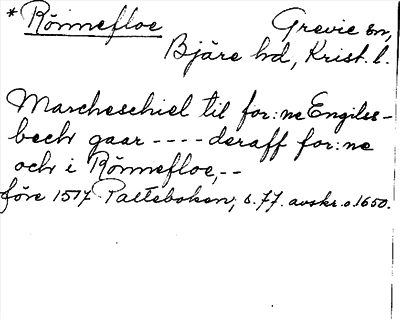 * Rönnefloe Grevie sn,
Bjäre hd, Krist. l.
Marcheschiel til for:ne Engilss-
bechr gaar ---- deraff for:ne
ochr i Rönnefloe, --
före 1517 Palteboken, s. 77. avskr. o. 1650.